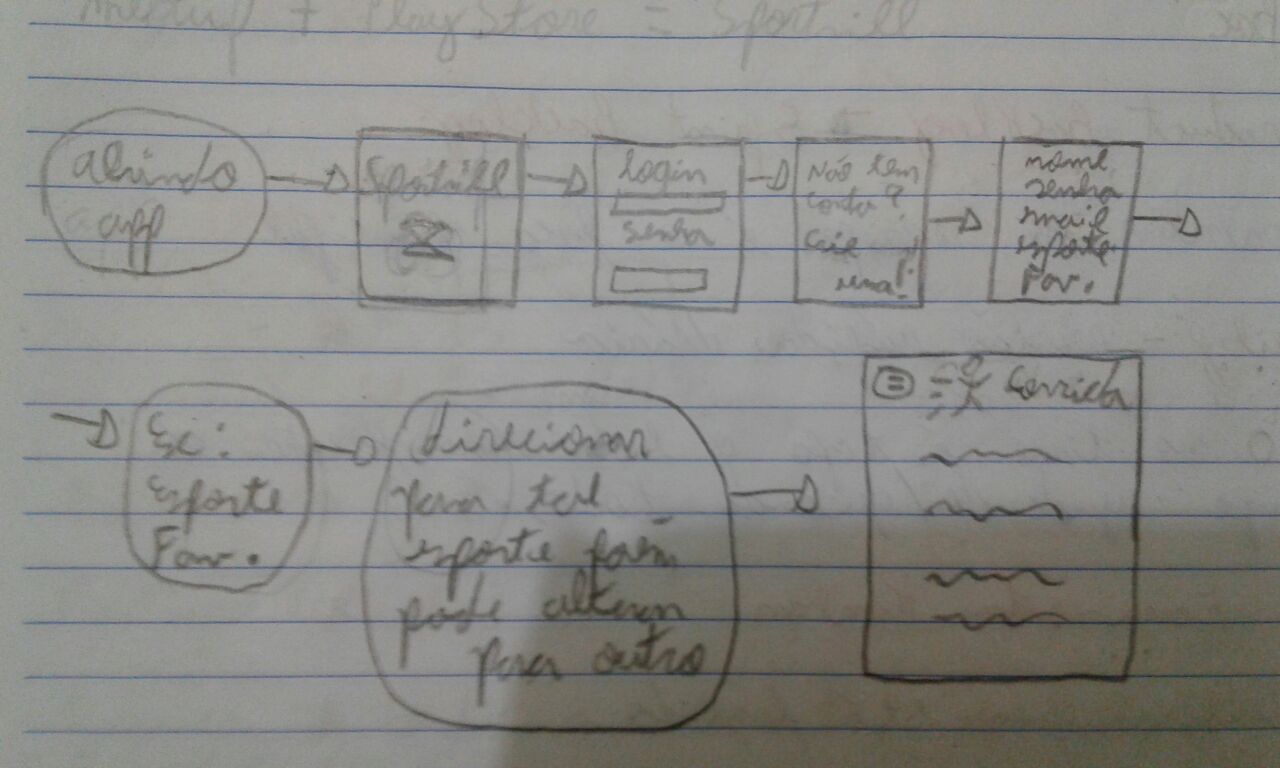 Meetup + PlayStore = Sportill
abrindo
app
Sportill
login
senha
Não tem
conta?
Crie
uma!
nome
senha
email
esporte
Fav.
Ex:
Esporte
Fav.
direcionar
para tal
esporte porém
pode alterar
para outro
Corrida